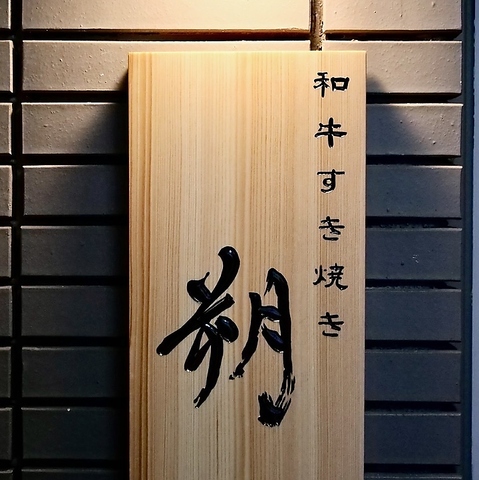 和牛すき焼き
朔